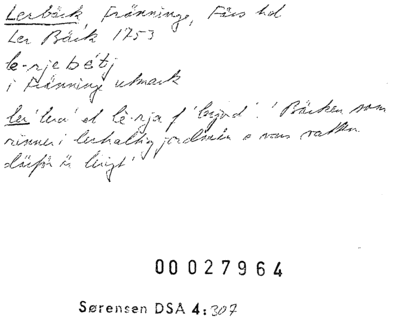 Lerbäck, Fränninge, Färs hd
Ler Bäck 1753
le·rjebétj
i Fränninge utmark
ler 'lera' el lé·rja f 'lerjord'. 'Bäcken som
rinner i lerhaltig jordmån o vars vatten
därför är lerigt'
00027964
Sørensen DSA 4:307